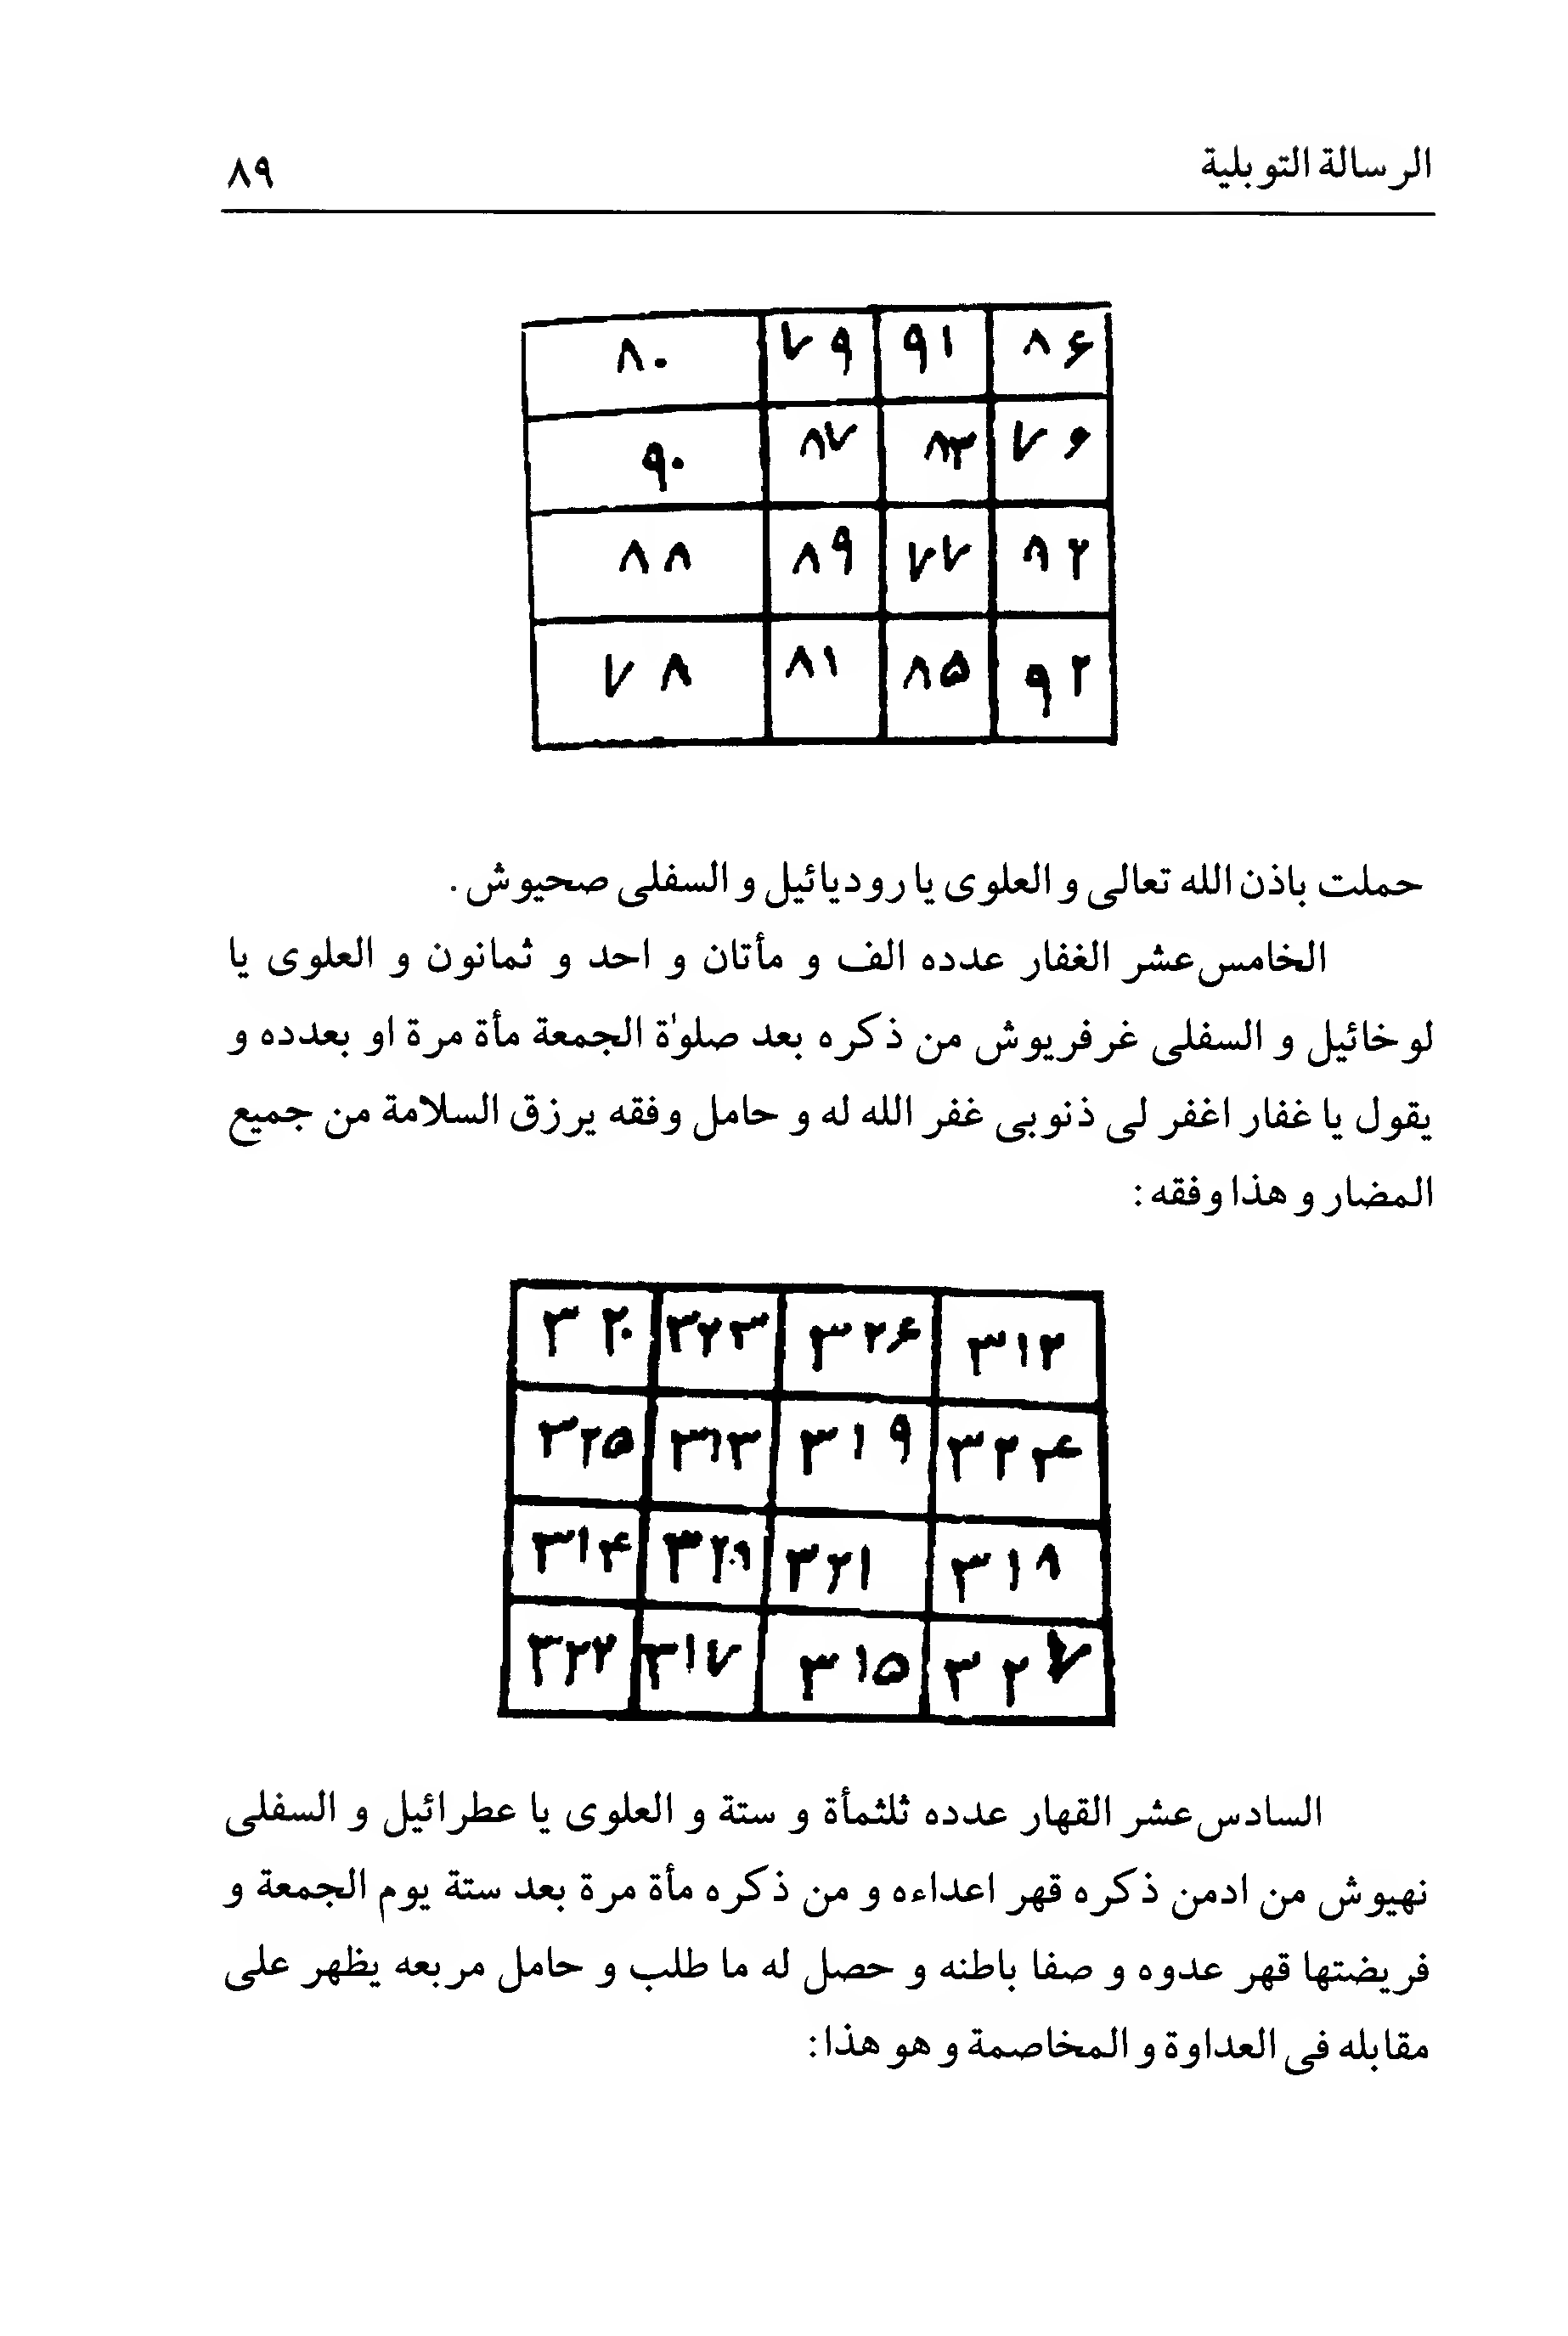 الرسالة التوبلية ٨٩
٨٠ ٧٩ ٩١ ٨۶
٩٠ ٨٧ ٨٣ ٧۶
٨٨ ٨٩ ٧٧ ٨٢
٧٨ ٨١ ٨۵ ٩٢
حملت باذن الله تعالى و العلوى يا روديائيل و السفلى صحيوش .
الخامس‌عشر الغفار عدده الف و مأتان و احد و ثمانون و العلوى يا
لوخائيل و السفلى غرفريوش من ذكره بعد صلوٰة الجمعة مأة مرة او بعدده و
يقول يا غفار اغفر لى ذنوبى غفر الله له و حامل وفقه يرزق السلامة من جميع
المضار و هذا وفقه :
٣٢٠ ٣٢٣ ٣٢۶ ٣١٢
٣٢۵ ٣١٣ ٣١٩ ٣٢۴
٣١۴ ٣٢١ ٣١٨
٣٢٢ ٣١٧ ٣١۵ ٣٢٧
السادس‌عشر القهار عدده ثلثمأة و ستة و العلوى يا عطرائيل و السفلى
نهيوش من ادمن ذكره قهر اعداءه و من ذكره مأة مرة بعد ستة يوم الجمعة و
فريضتها قهر عدوه و صفا باطنه و حصل له ما طلب و حامل مربعه يظهر على
مقابله فى العداوة و المخاصمة و هو هذا: